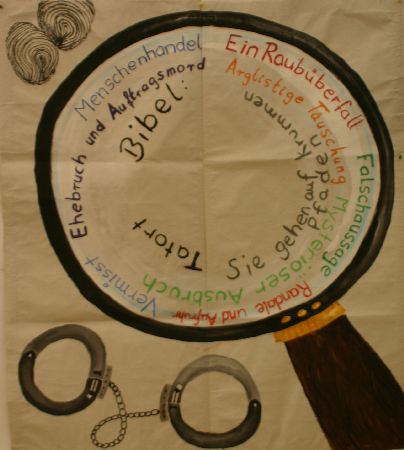 Tatort
Bibel:
Sie gehen auf krummen
Pfaden
Menschenhandel
Ein Raubüberfall
Arglistige Täuschung
Falschaussage
Mysteriöser Ausbruch
Randale und Aufruhr
Vermisst
Ehebruch und Auftragsmord